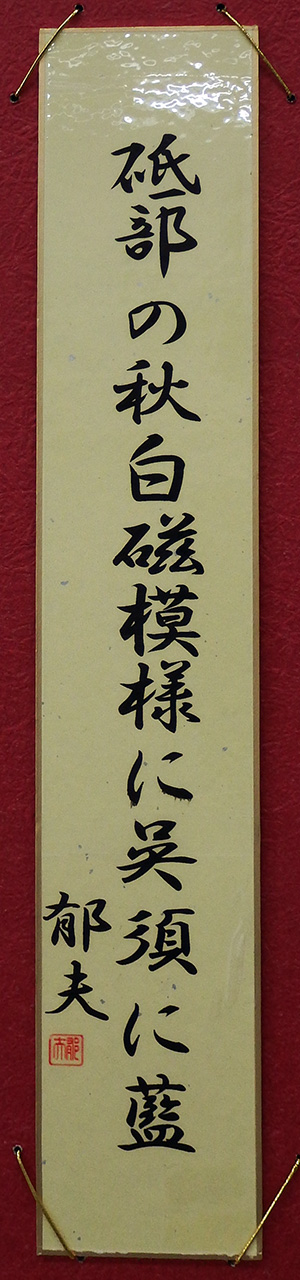 砥部の秋白磁模様に呉須に藍
郁夫